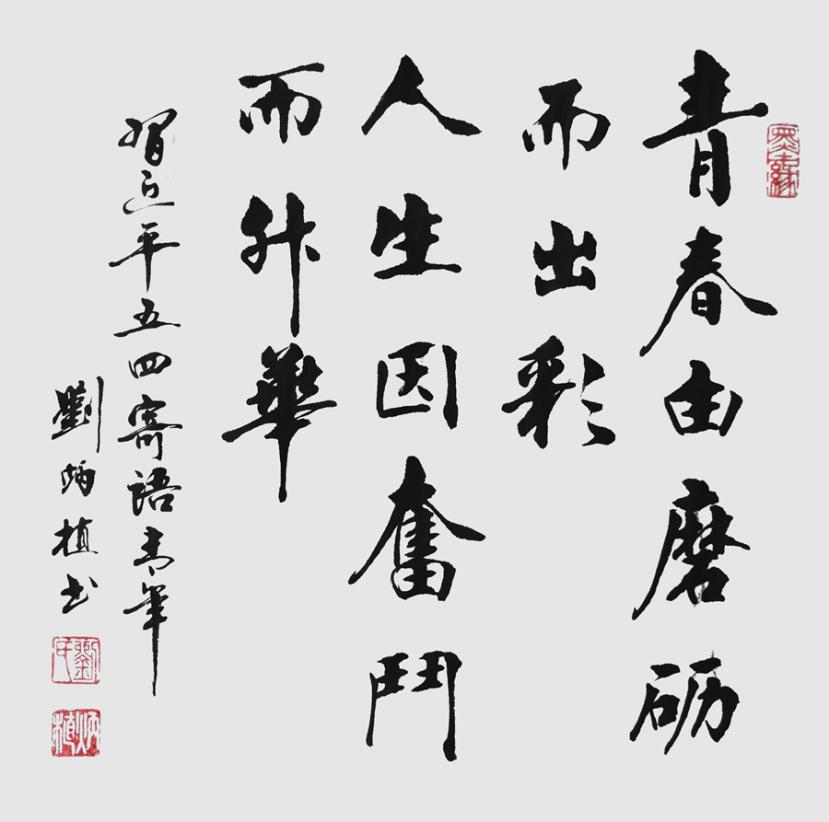 青春由磨砺
而出彩
人生因奮鬥
而升華
習近平五四寄語青年
劉炳植书
炳植